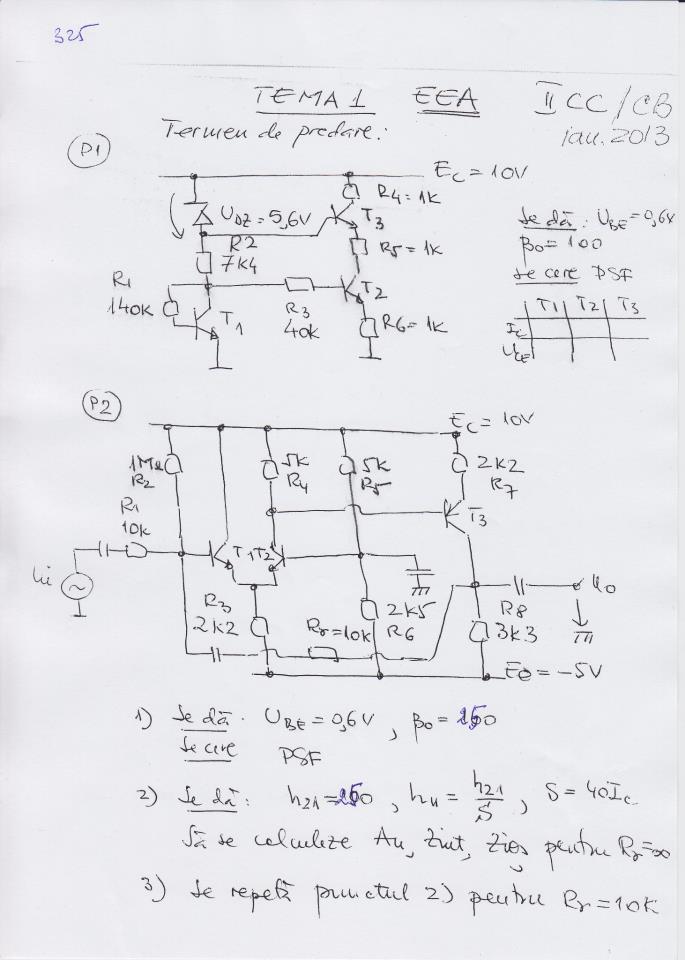 325
TEMA 1 EEA II CC/CB
Termen de predare: ian. 2013
P1
EC = 10V
R4=1K
UDZ = 5,6V
T3
R2
7K4
R5=1K
R1
140K
T1
R3
40K
T2
R6=1K
Se dă: UBE=0,6V
β0=100
Se cere PSF
T1 T2 T3
IC
UCE
P2
EC = 10V
1MΩ
R2
5K
R4
5K
R5
2K2
R7
R1
10K
T1 T2
T3
ui
R3
2K2
Rr=10K
2K5
R6
R8
3K3
uo
EE = -5V
1) Se dă: UBE=0,6V, β0=
Se cere PSF
2) Se dă: h21= , h11 = h21/S, S = 40IC
Să se calculeze Au, Zint, Zieș pentru Rr=∞
3) Se repetă punctul 2) pentru Rr=10K